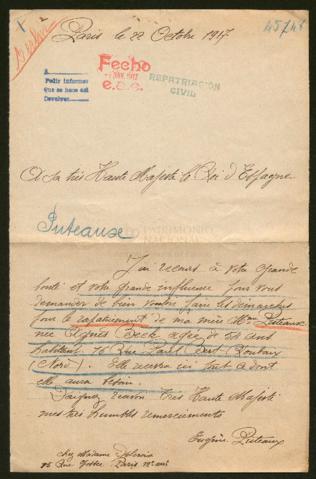 Paris le 22 Octobre 1917
45748
A
Pedir informes
que se hace así
Devolver
Fecho
1917
E.O.C.
REPATRIACIÓN
CIVIL
A Sa très Haute Majesté le Roi d'Espagne
Puteause
PATRIMONIO
NACIONAL
J'ai recours à votre grande
bonté et votre grande influence pour vous
demander de bien vouloir faire les démarches
pour le rapatriement de ma mère Mme Puteaux
née Agnès agée de ans
habitant 76 Rue Roubaix
(Nord). Elle recevra ici tout ce dont
elle aura besoin.
Daignez recevoir Très Haute Majesté
mes très humbles remerciements
Eugène Puteaux
chez Madame
75 Rue Paris